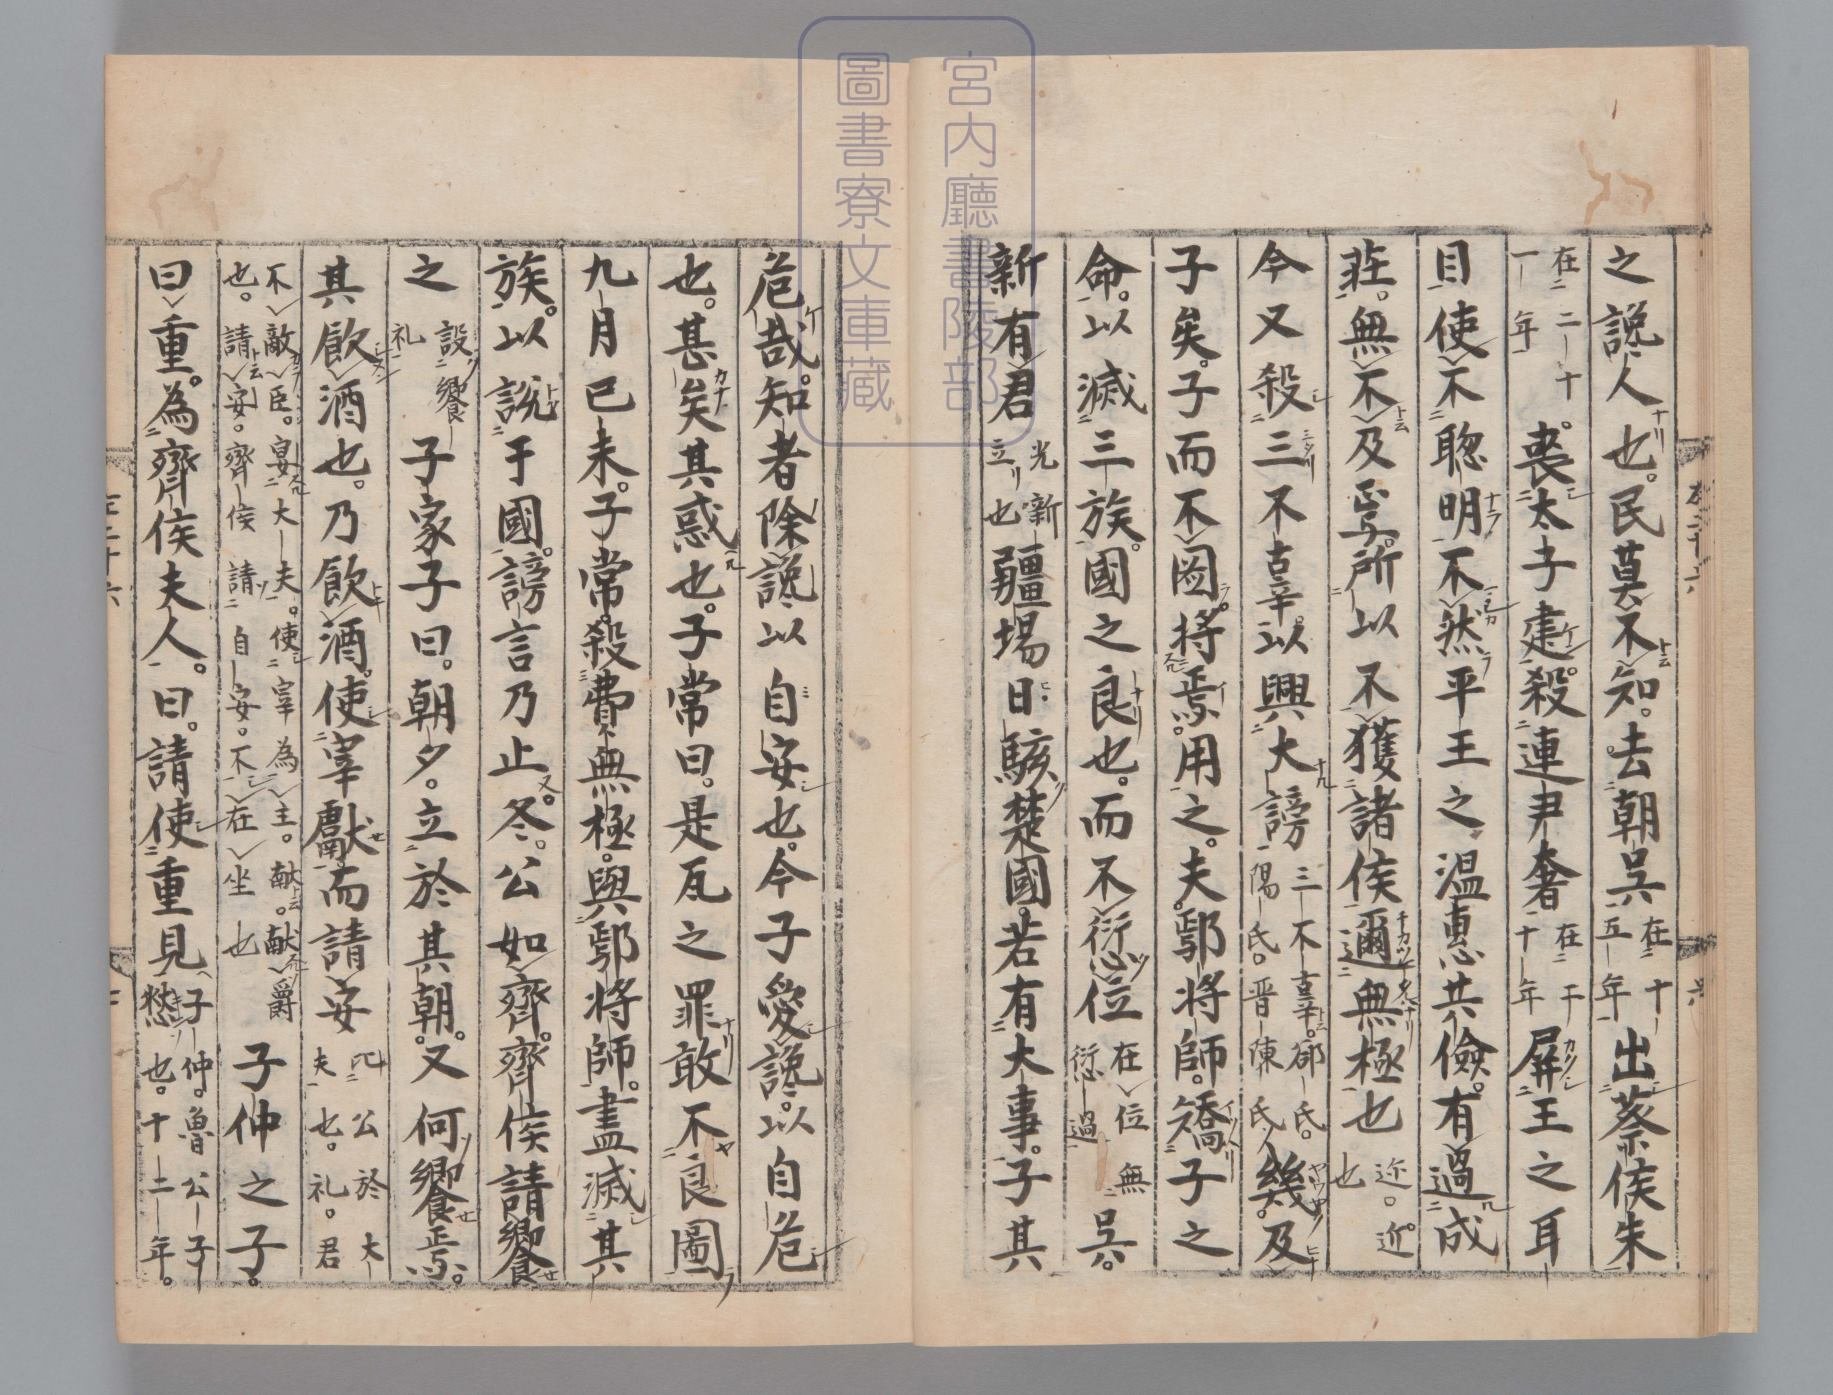 之讒人也民莫不知去朝吳在十五年出蔡侯朱
在二十一年喪太子建殺連尹奢在二十年屏王之耳
目使不聰明不然平王之温惠共儉有過成
莊無不及焉所以不獲諸侯邇無極也迩近也
今又殺三不辜以興大謗三不辜郤氏陽氏晋陳氏幾及
子矣子而不圖將焉用之夫鄢將師矯子之
命以滅三族國之良也而不愆位在位無愆過吳
新有君光新立也疆場日駭楚國若有大事子其
危哉知者除讒以自安也今子愛讒以自危
也甚矣其惑也子常曰是瓦之罪敢不良圖
九月己未子常殺費無極與鄢將師盡滅其
族以說于國謗言乃止冬公如齊齊侯請饗
之設饗礼子家子曰朝夕立於其朝又何饗焉
其飲酒也乃飲酒使宰獻而請安比公於大夫也礼君
不敵臣宴大夫使宰為主献献爵也請安齊侯請自安不在坐也子仲之子
曰重為齊侯夫人曰請使重見子仲魯公子憖也十二年
圖書寮文庫藏
宮内廳書陵部